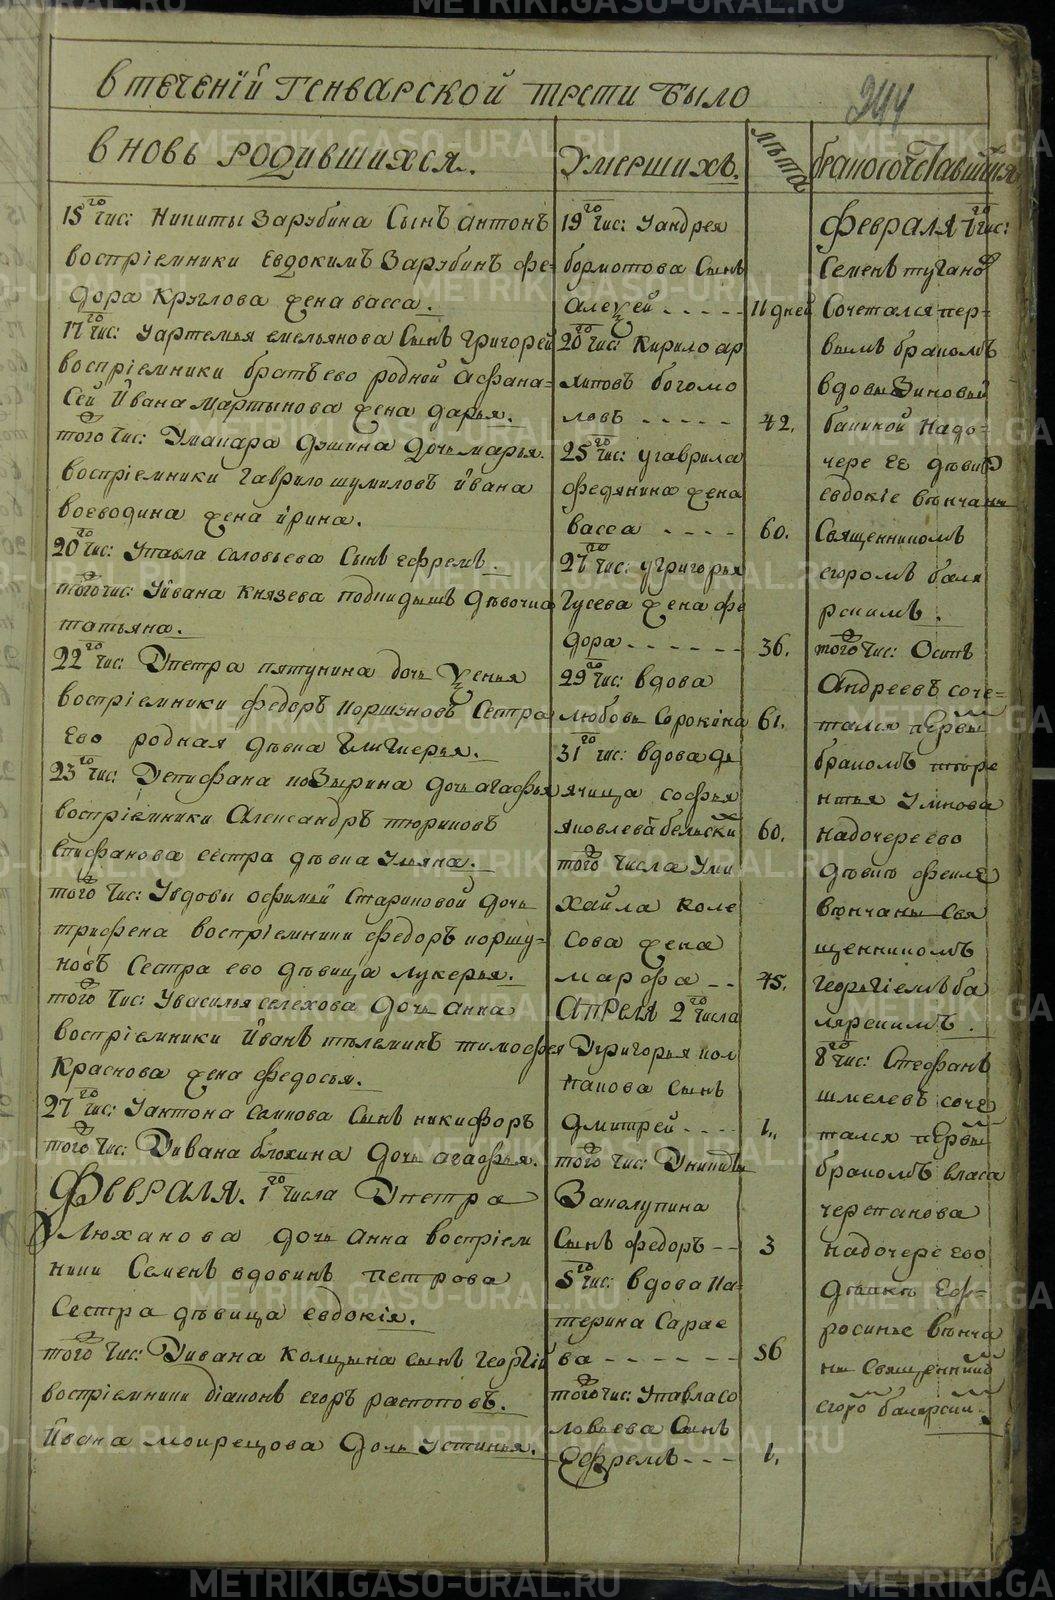 в течениӥ Генварской трети было
244
вновь родившихся.
15 го чис: Никиты Зарубина Сынъ антонъ
воспрiемники Евдокимъ Зарубинъ фе-
дора Круглова жена васса.
17 го чис: Уартемья емельянова Сынъ григорей
воспрiемники братъ ево родной Афана-
сей Ивана мартынова жена дарья.
того чис: Умакара душина дочь марья.
воспрiемники гаврило шумиловъ Ивана
воеводина жена ирина.
20 го чис: Упавла соловьева Сынъ ефремъ.
того чис: Уивана Князева подкидышъ дѣвочка
татьяна.
22 го чис: Упетра пятунина дочь Ксенья
воспрiемники федоръ коршуновъ Сестра
Ево родная дѣвка Гликерья.
23 го чис: Уепифана козырина дочь агафья
воспрiемники Александръ тюриковъ
Епифанова сестра дѣвка Ульяна.
того чис: Увдовы офимьи Стариковой дочь
трифена воспрiемники федоръ коршу-
новъ Сестра ево дѣвица лукерья.
того чис: Увасилья селехова дочь анна
воспрiемники Иванъ тѣлеминъ тимофея
Краснова жена федосья.
27 го чис: Уантона саинова Сынъ никифоръ
того чис: Уивана блохина дочь агафья.
Февраля. 1 го числа Упетра
Люханова дочь анна воспрiем
ники Семенъ вдовинъ петрова
Сестра дѣвица евдокiя.
того чис: Уивана колцына сынъ георгiй
воспрiемники дiаконъ егоръ распоповъ.
Ивана мокрецова дочь устинья.
Умершихъ.
19 го чис: Уандрея
бормотова Сынъ
алексей - - - - -
20 го чис: Кирило ар
хиповъ богомо
ловъ - - - - -
25 го чис: угаврила
федянина жена
васса - - - -
27 го чис: угригорья
Гусева жена фе
дора - - - - - -
29 го чис: вдова
любовь Сорокина
31 го чис: вдова дь
ячица софья
яковлева бельских
того числа Уми
хайла коле
сова жена
марфа - -
Апреля 2 го числа
Угригорья кол
пакова Сынъ
дмитрей - - - -
того чис: Уникиты
Заколупина
Сынъ федоръ - -
5 го чис: вдова Ка-
терина Сарае
ва - - - - - - -
того чис: Упавла со
ловьева Сынъ
Ефремъ - - -
лѣта
11 дней
42.
60.
36.
61.
60.
45.
1.
3
56
1.
бракосочетавшихся
февраля 7 го чис:
Семенъ тугано
Сочетался пер-
вымъ бракомъ
вдовы Зиновьи
бакиной надо-
чере Ее дѣвицѣ
евдокiе вѣнчаны
Священникомъ
егоромъ баля
рскимъ.
того чис: Осипъ
Андреевъ соче-
тался первы
бракомъ терe
нтья Умнова
надочере ево
дѣвкѣ феклѣ
вѣнчаны свя
щенникомъ
георгiемъ ба
лярскимъ.
8 го чис: Стефанъ
шмелевъ соче
тался первы
бракомъ власа
черепанова
надочере ево
дѣвкѣ Еф-
росинье вѣнча
ны священнико
егоро балярски.